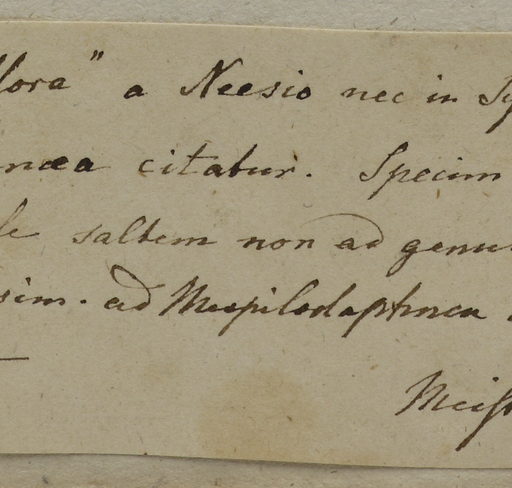 flora" a Neesio nec in Sy
nœa citatur. Specim
le saltem non ad genu
sim. ad Mespilodaphnea
Meiſ